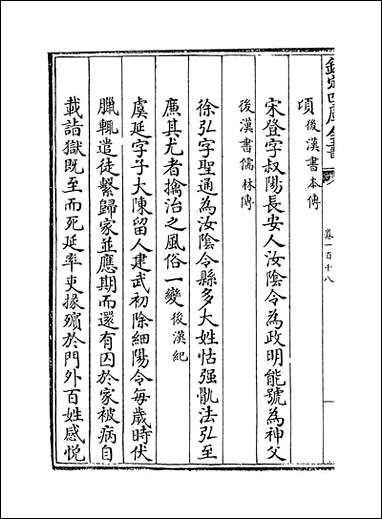 欽定四庫全書
卷一百十八
項後漢書本傳
宋登字叔陽長安人汝陰令為政明能號為神父
後漢書儒林傳
徐弘字聖通為汝陰令縣多大姓怙强骫法弘至
廉其尤者擒治之風俗一變後漢紀
虞延字子大陳留人建武初除細陽令每歲時伏
臘輒遣徒繫歸家並應期而還有囚於家被病自
載詣獄既至而死延率吏掾殯於門外百姓感悦